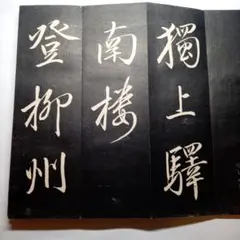 獨上驛
南樓
登柳州